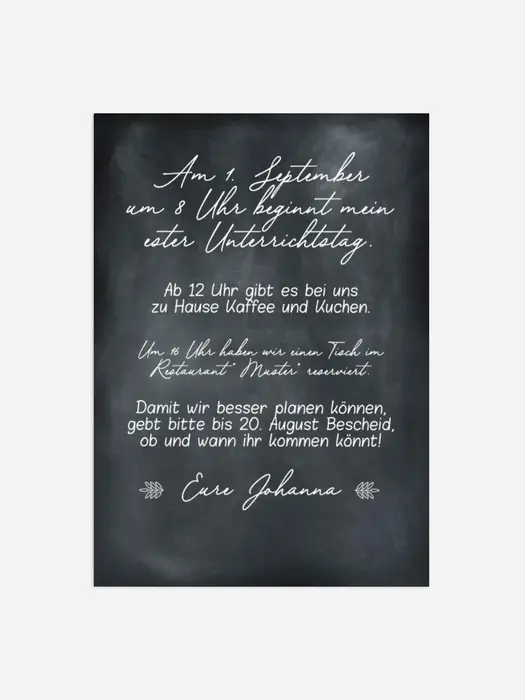 Am 1. September
um 8 Uhr beginnt mein
ester Unterrichtstag.
Ab 12 Uhr gibt es bei uns
zu Hause Kaffee und Kuchen.
Um 16 Uhr haben wir einen Tisch im
Restaurant "Muster" reserviert.
Damit wir besser planen können,
gebt bitte bis 20. August Bescheid,
ob und wann ihr kommen könnt!
Eure Johanna